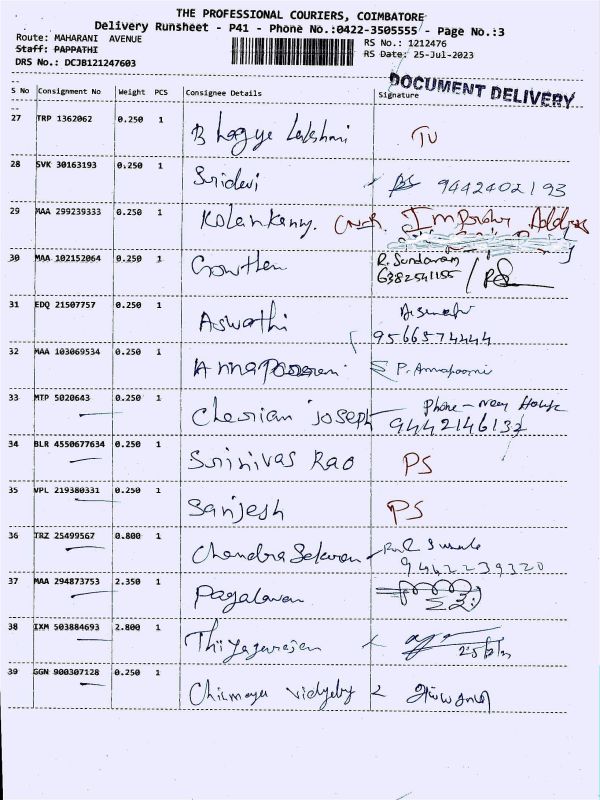 THE PROFESSIONAL COURIERS, COIMBATORE
Delivery Runsheet - P41 - Phone No.:0422-3505555 - Page No.:3
Route: MAHARANI AVENUE
RS No.: 1212476
Staff: PAPPATHI
RS Date: 25-Jul-2023
DRS No.: DCJB121247603
DOCUMENT DELIVERY
S No Consignment No Weight PCS Consignee Details Signature
27 TRP 1362062 0.250 1 Bhagya Lakshmi TV
28 SVK 30163193 0.250 1 Sridevi 9442402193
29 MAA 299239333 0.250 1 Address
30 MAA 102152064 0.250 1 Gowthem R. Sundaram
6382541155
31 EDQ 21507757 0.250 1 Aswathi
9566574444
32 MAA 103069534 0.250 1 P. Annapoorni
33 MTP 5020643 0.250 1 Cherian Joseph Phone - New House
9442146132
34 BLR 4550677634 0.250 1 Srinivas Rao PS
35 VPL 219380331 0.250 1 Sanjesh PS
36 TRZ 25499567 0.800 1 Chandra Sekaran
9442239320
37 MAA 294873753 2.350 1 Pagalavan
38 IXM 503884693 2.800 1 Thiyagarajan
39 GGN 900307128 0.250 1 Chinmaya